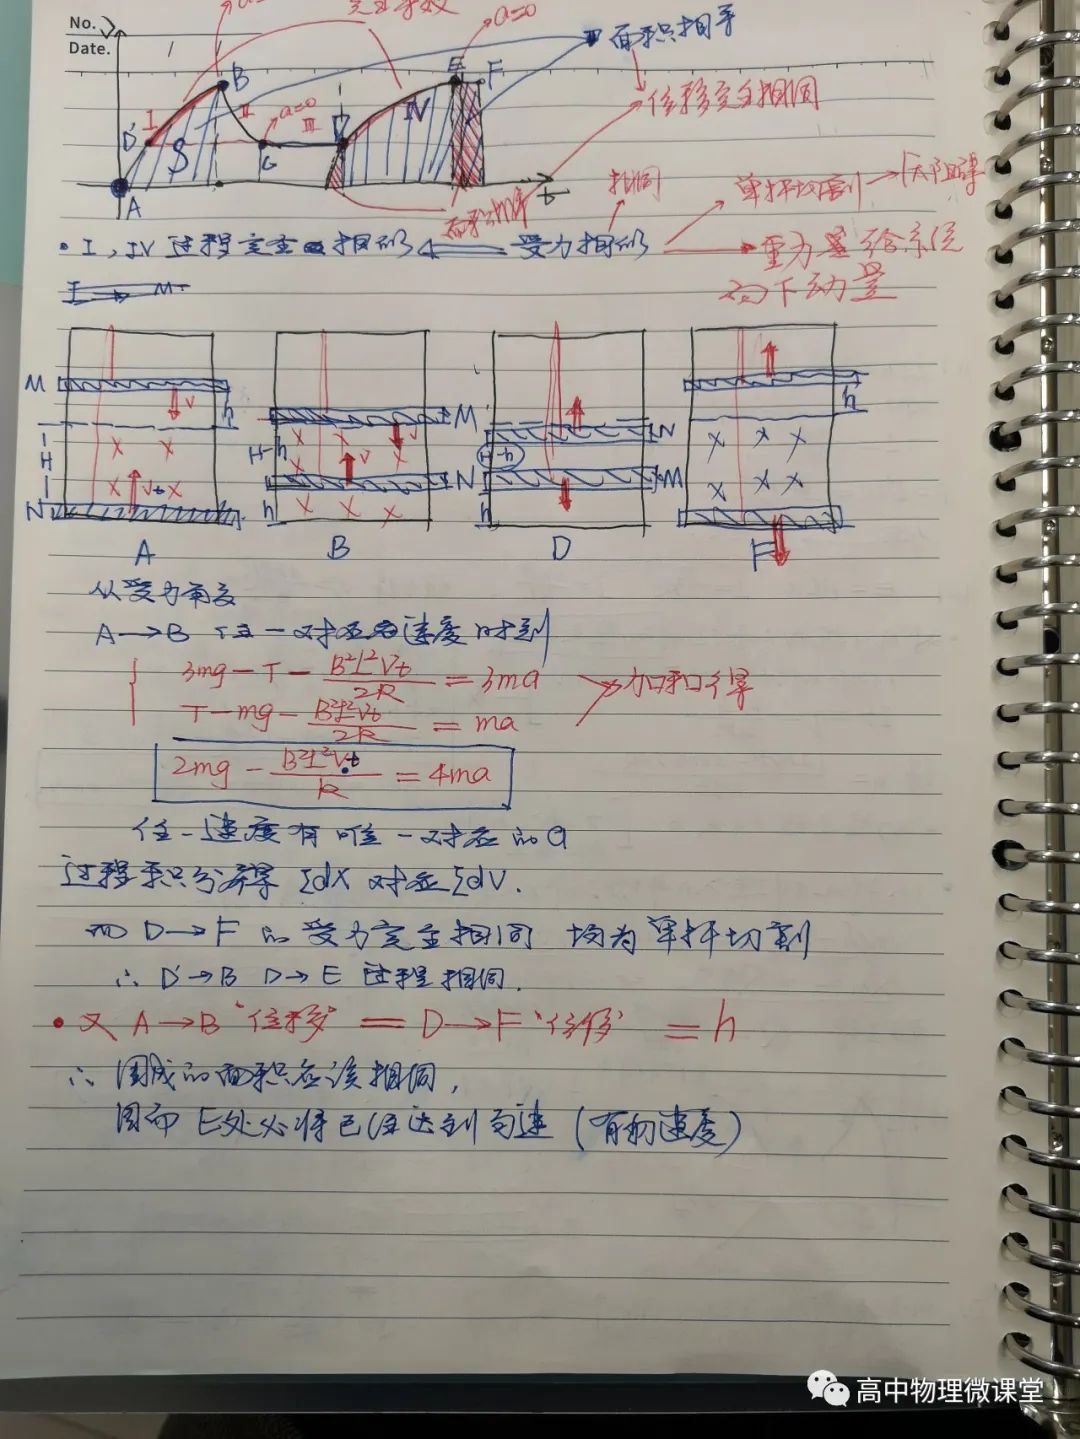 No.
Date.
a=0
面积相等
B
E
F
I
II
a=0
III
IV
位移完全相同
D'
S
G
D
A
t
相同
单杆切割
面积相等
• I, IV 过程完全相似
受力相似
重力给系统
向下动量
M
v
h
H
N
A
M
v
H-h
N
h
B
N
H-h
M
h
D
h
F
从受力角度
A→B 任一对应速度时刻
3mg-T-B²l²Vt/2R=3ma
加和得
T-mg-B²l²Vt/2R=ma
2mg-B²l²Vt/R=4ma
任一速度有唯一对应的a
过程累积分得 ΣdX 对应ΣdV.
而 D→F 的受力完全相同 均为单杆切割
∴ D'→B D→E 过程相同.
• 又 A→B "位移" = D→F "位移" = h
∴ 围成的面积应该相同,
因而 E处必将已经达到匀速 (有初速度)
高中物理微课堂